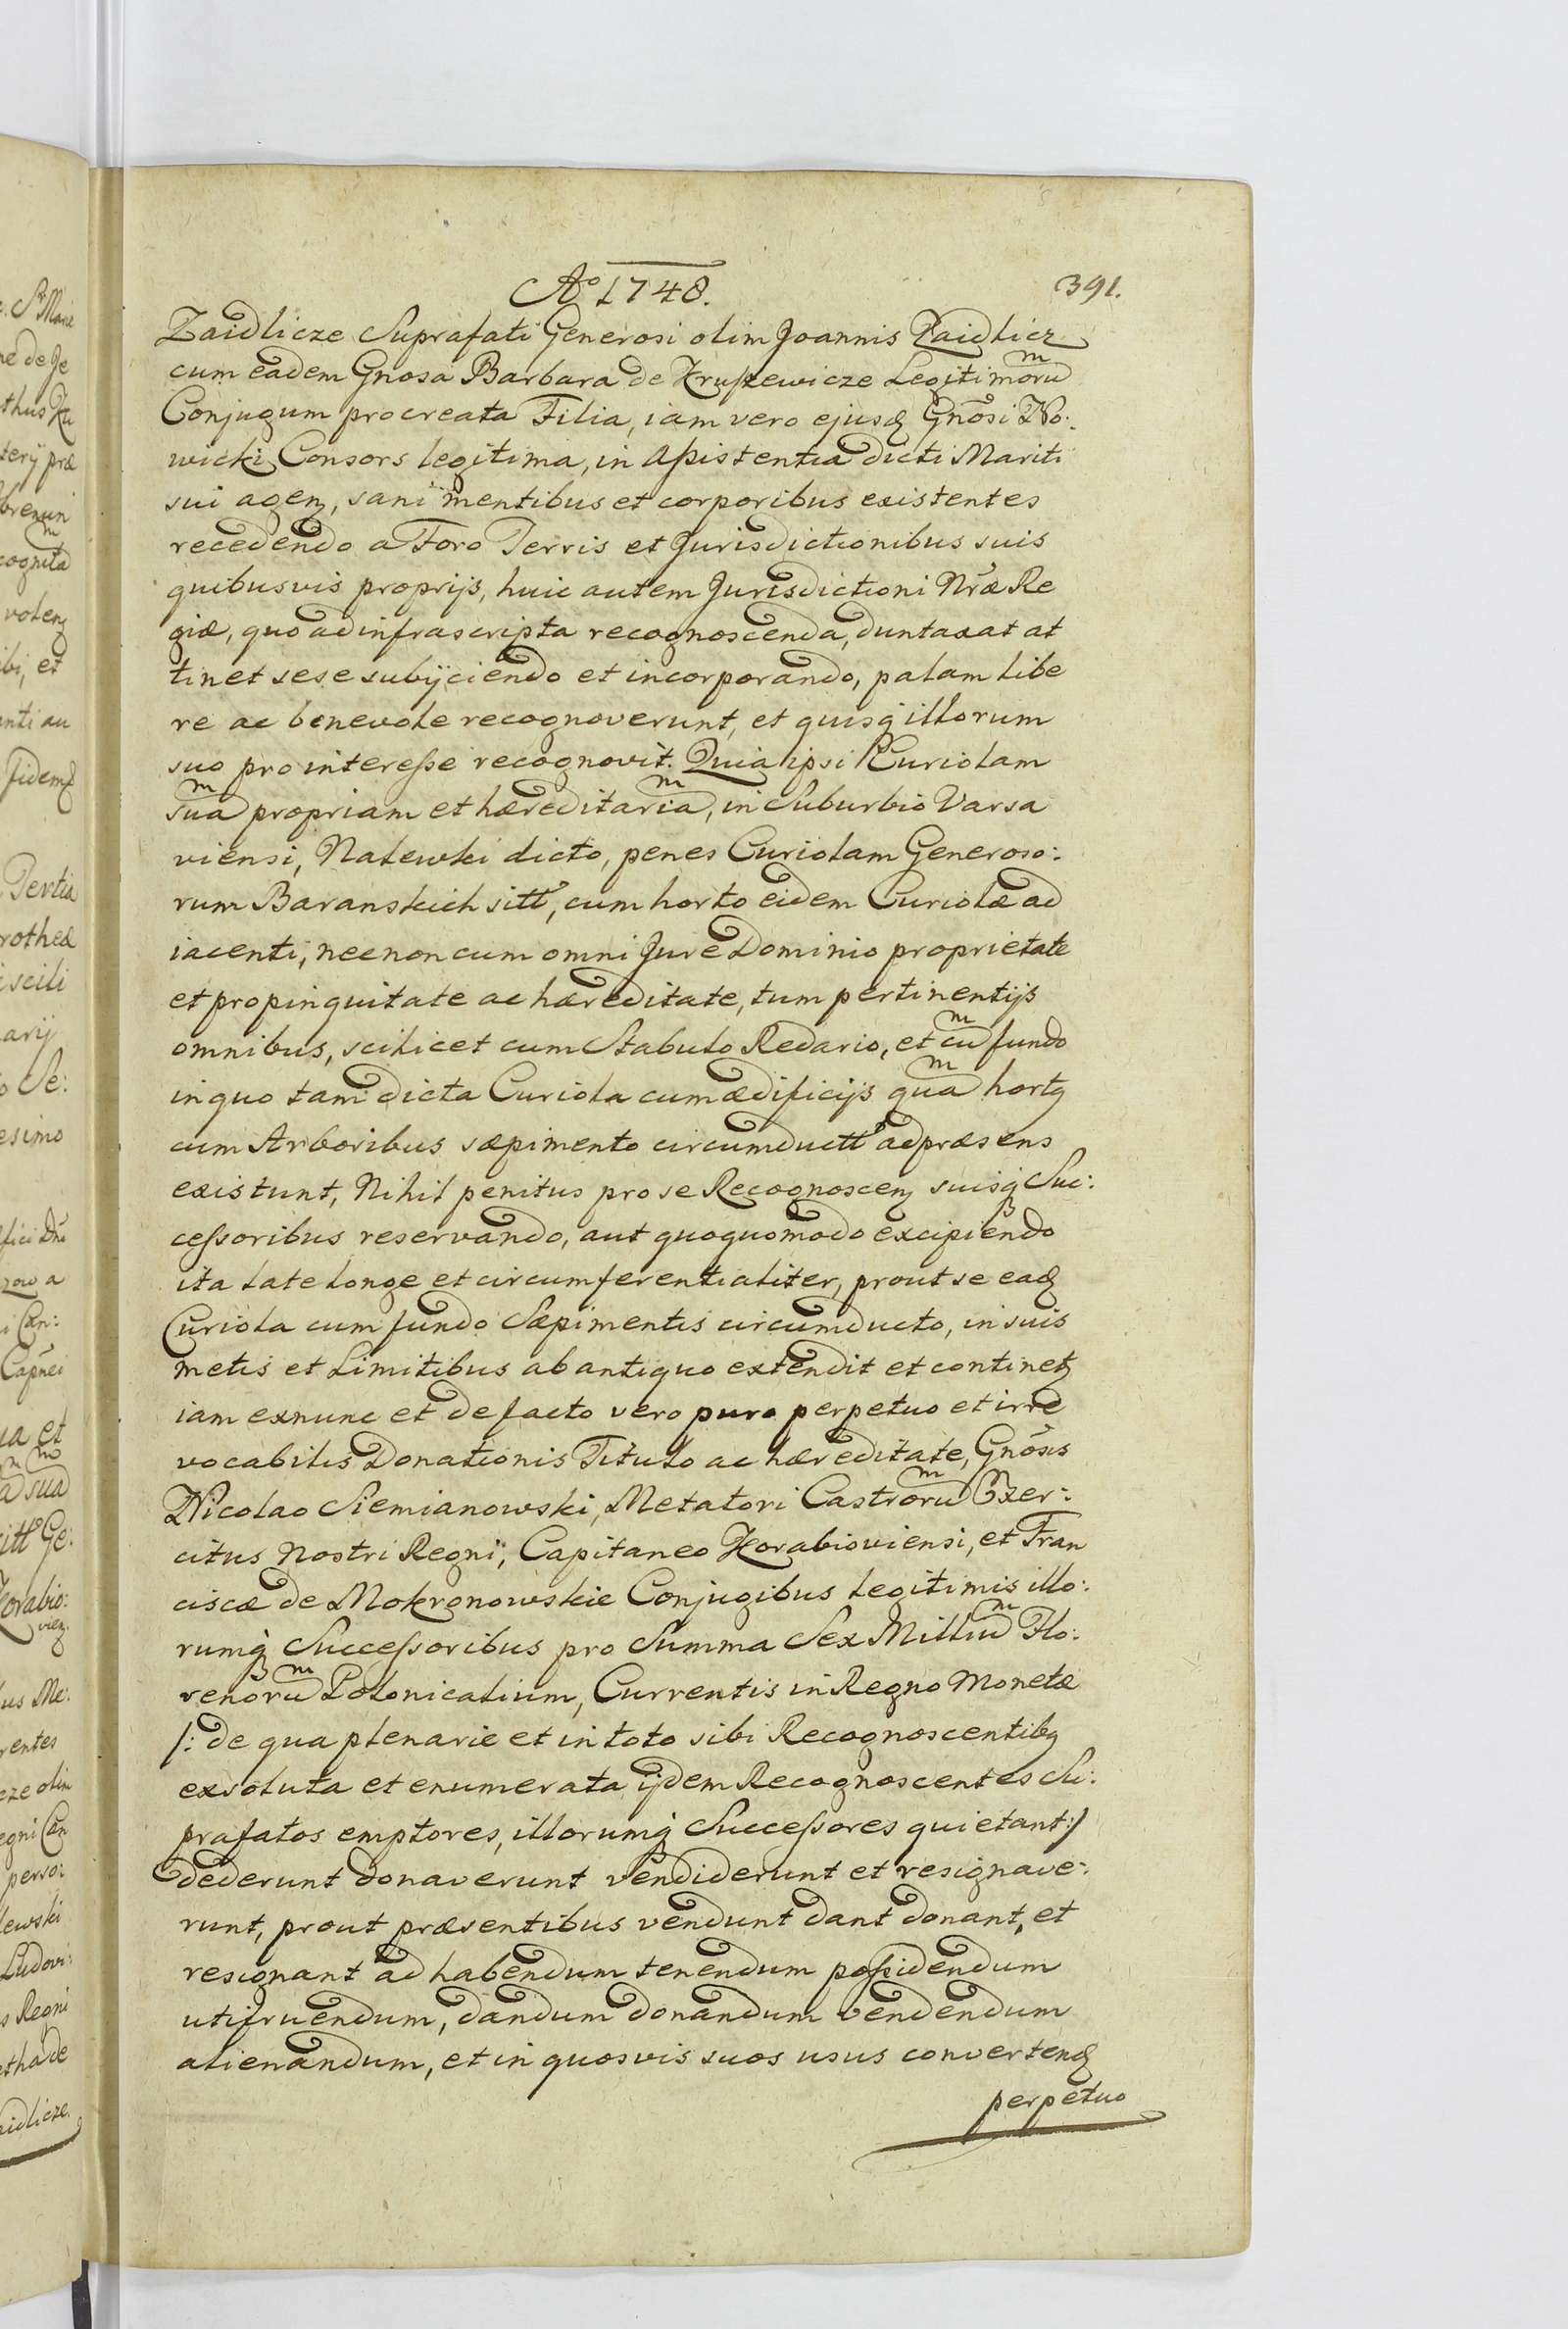 Aº 1748.
391.
Zaidlicze Suprafati Generosi olim Joannis Zaidlicz
cum eadem Gnosa Barbara de Kruszewicze Legitimorum
Conjugum procreata Filia, iam vero ejusq Gnosi No:
wicki Consors legitima, in Assistentia dicti Mariti
sui agen, sani mentibus et corporibus existentes
recedendo a Foro Terris et Jurisdictionibus suis
quibusvis proprijs, huic autem Jurisdictioni Nræ Re
giæ, quo ad infrascripta recognoscenda, duntaxat at
tinet sese subijciendo et incorporando, palam libe
re ac benevole recognoverunt, et quisq illorum
suo pro interesse recognovit. Quia ipsi Curiolam
suam propriam et hæreditariam, in Suburbio Varsa
viensi, Nalewki dicto, penes Curiolam Generoso:
rum Baranskich sitt, cum horto eidem Curiolæ ad
iacenti, necnon cum omni Jure Dominio proprietate
et propinquitate ac hæreditate, tum pertinentijs
omnibus, scilicet cum Stabulo Redario, et cum fundo
in quo tam dicta Curiola cum ædificijs quam hortq
cum Arboribus sæpimento circumductt ad præsens
existunt, Nihil penitus pro se Recognoscen suisq Suc:
cessoribus reservando, aut quoquomodo excipiendo
ita late longe et circumferentialiter, prout se eadq
Curiola cum fundo Sæpimentis circumducto, in suis
metis et Limitibus ab antiquo extendit et continet
iam exnunc et de facto vero puro perpetuo et irre
vocabilis Donationis Titulo ac hæreditate, Gnosis
Nicolao Siemianowski, Metatori Castrorum Exer:
citus Nostri Regni, Capitaneo Korabioviensi, et Fran
ciscæ de Mokronowskie Conjugibus legitimis illo:
rumq Successoribus pro Summa Sex Millium Flo:
renorum Polonicalium, Currentis in Regno Monetæ
/: de qua plenarie et in toto sibi Recognoscentibq
exsoluta et enumerata ijdem Recognoscentes Su:
prafatos emptores, illorumq Successores quietant :/
dederunt donaverunt vendiderunt et resignave:
runt, prout præsentibus vendunt dant donant, et
resignant ad habendum tenendum possidendum
utifruendum, dandum donandum vendendum
alienandum, et in quosvis suos usus convertend
perpetuo